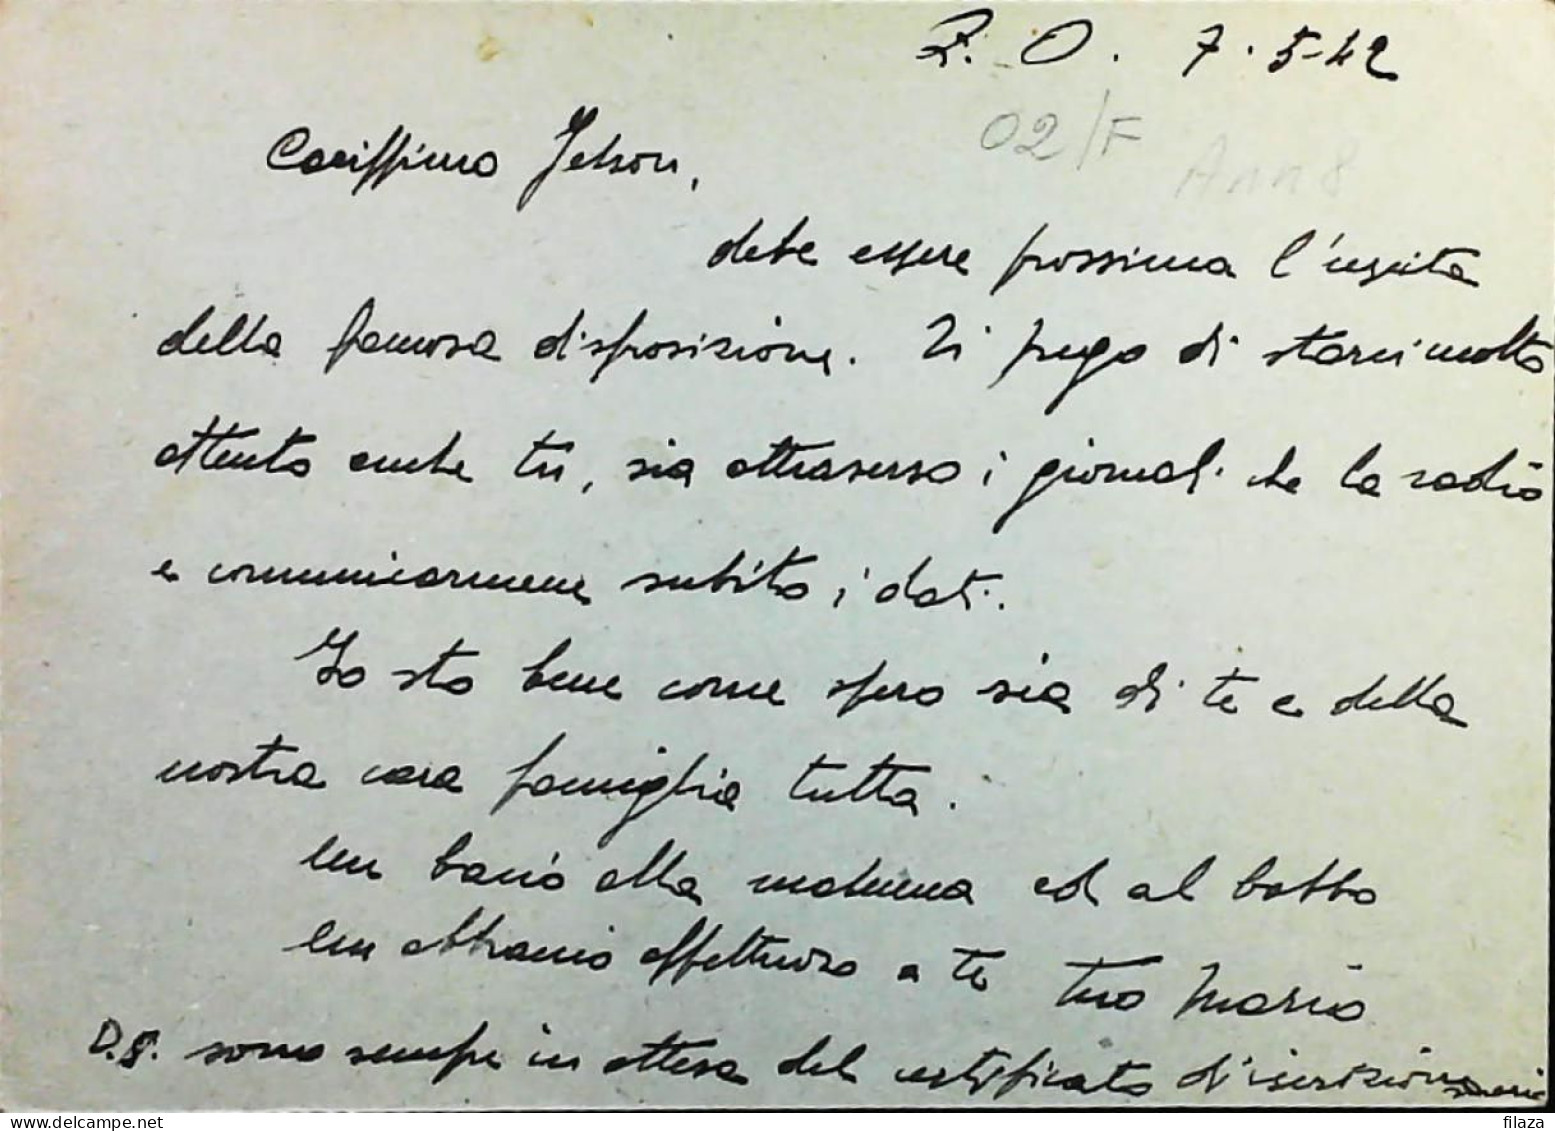 Z. O. 7-5-42
02/F
Carissimo Jelson,
debe essere prossima l'uscita
della famosa disposizione. Ti prego di starci molto
attento anche tu, sia attraverso i giornali che la radio
e comunicarmene subito i dati.
Io sto bene come spero sia di te e della
nostra cara famiglia tutta.
Un bacio alla mamma ed al babbo
Un abbraccio affettuoso a te tuo Mario
P.S. sono sempre in attesa del certificato d'iscrizione
Delcampe.net
filaza